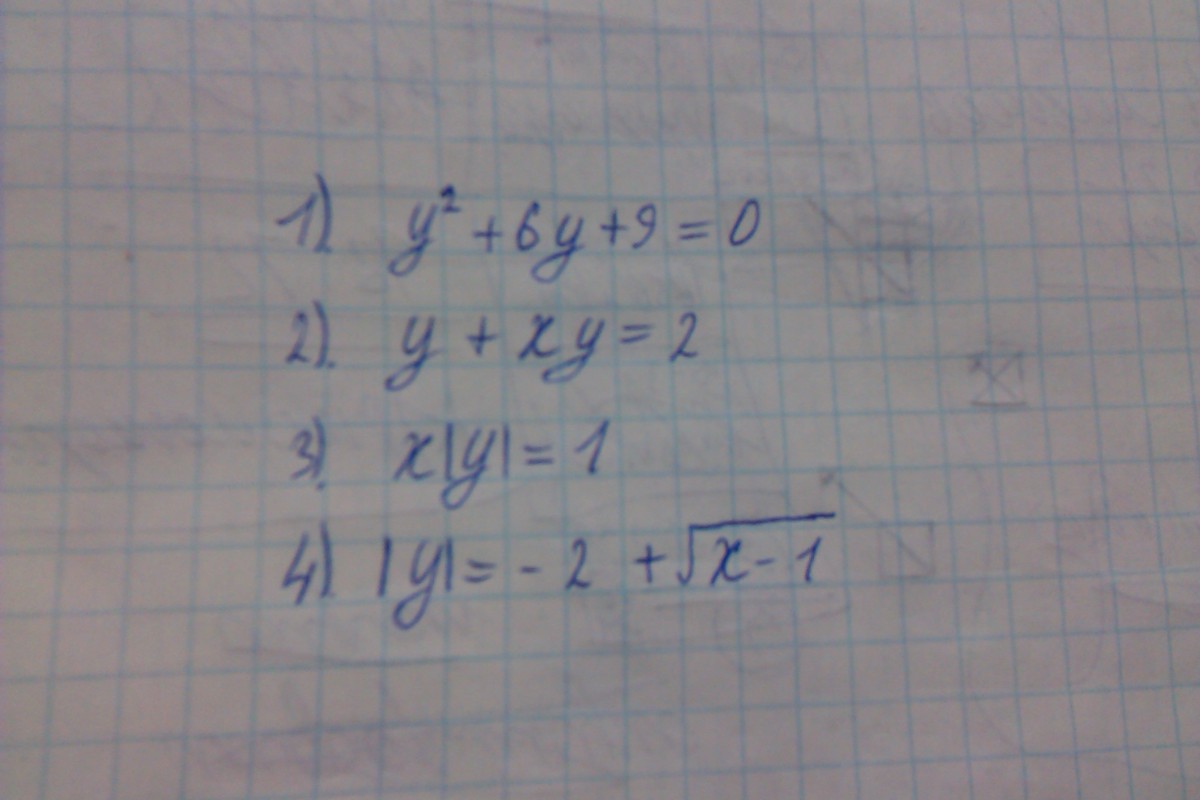 1) y² + 6y + 9 = 0
2). y + xy = 2
3). x|y| = 1
4) |y| = - 2 + √(x - 1)